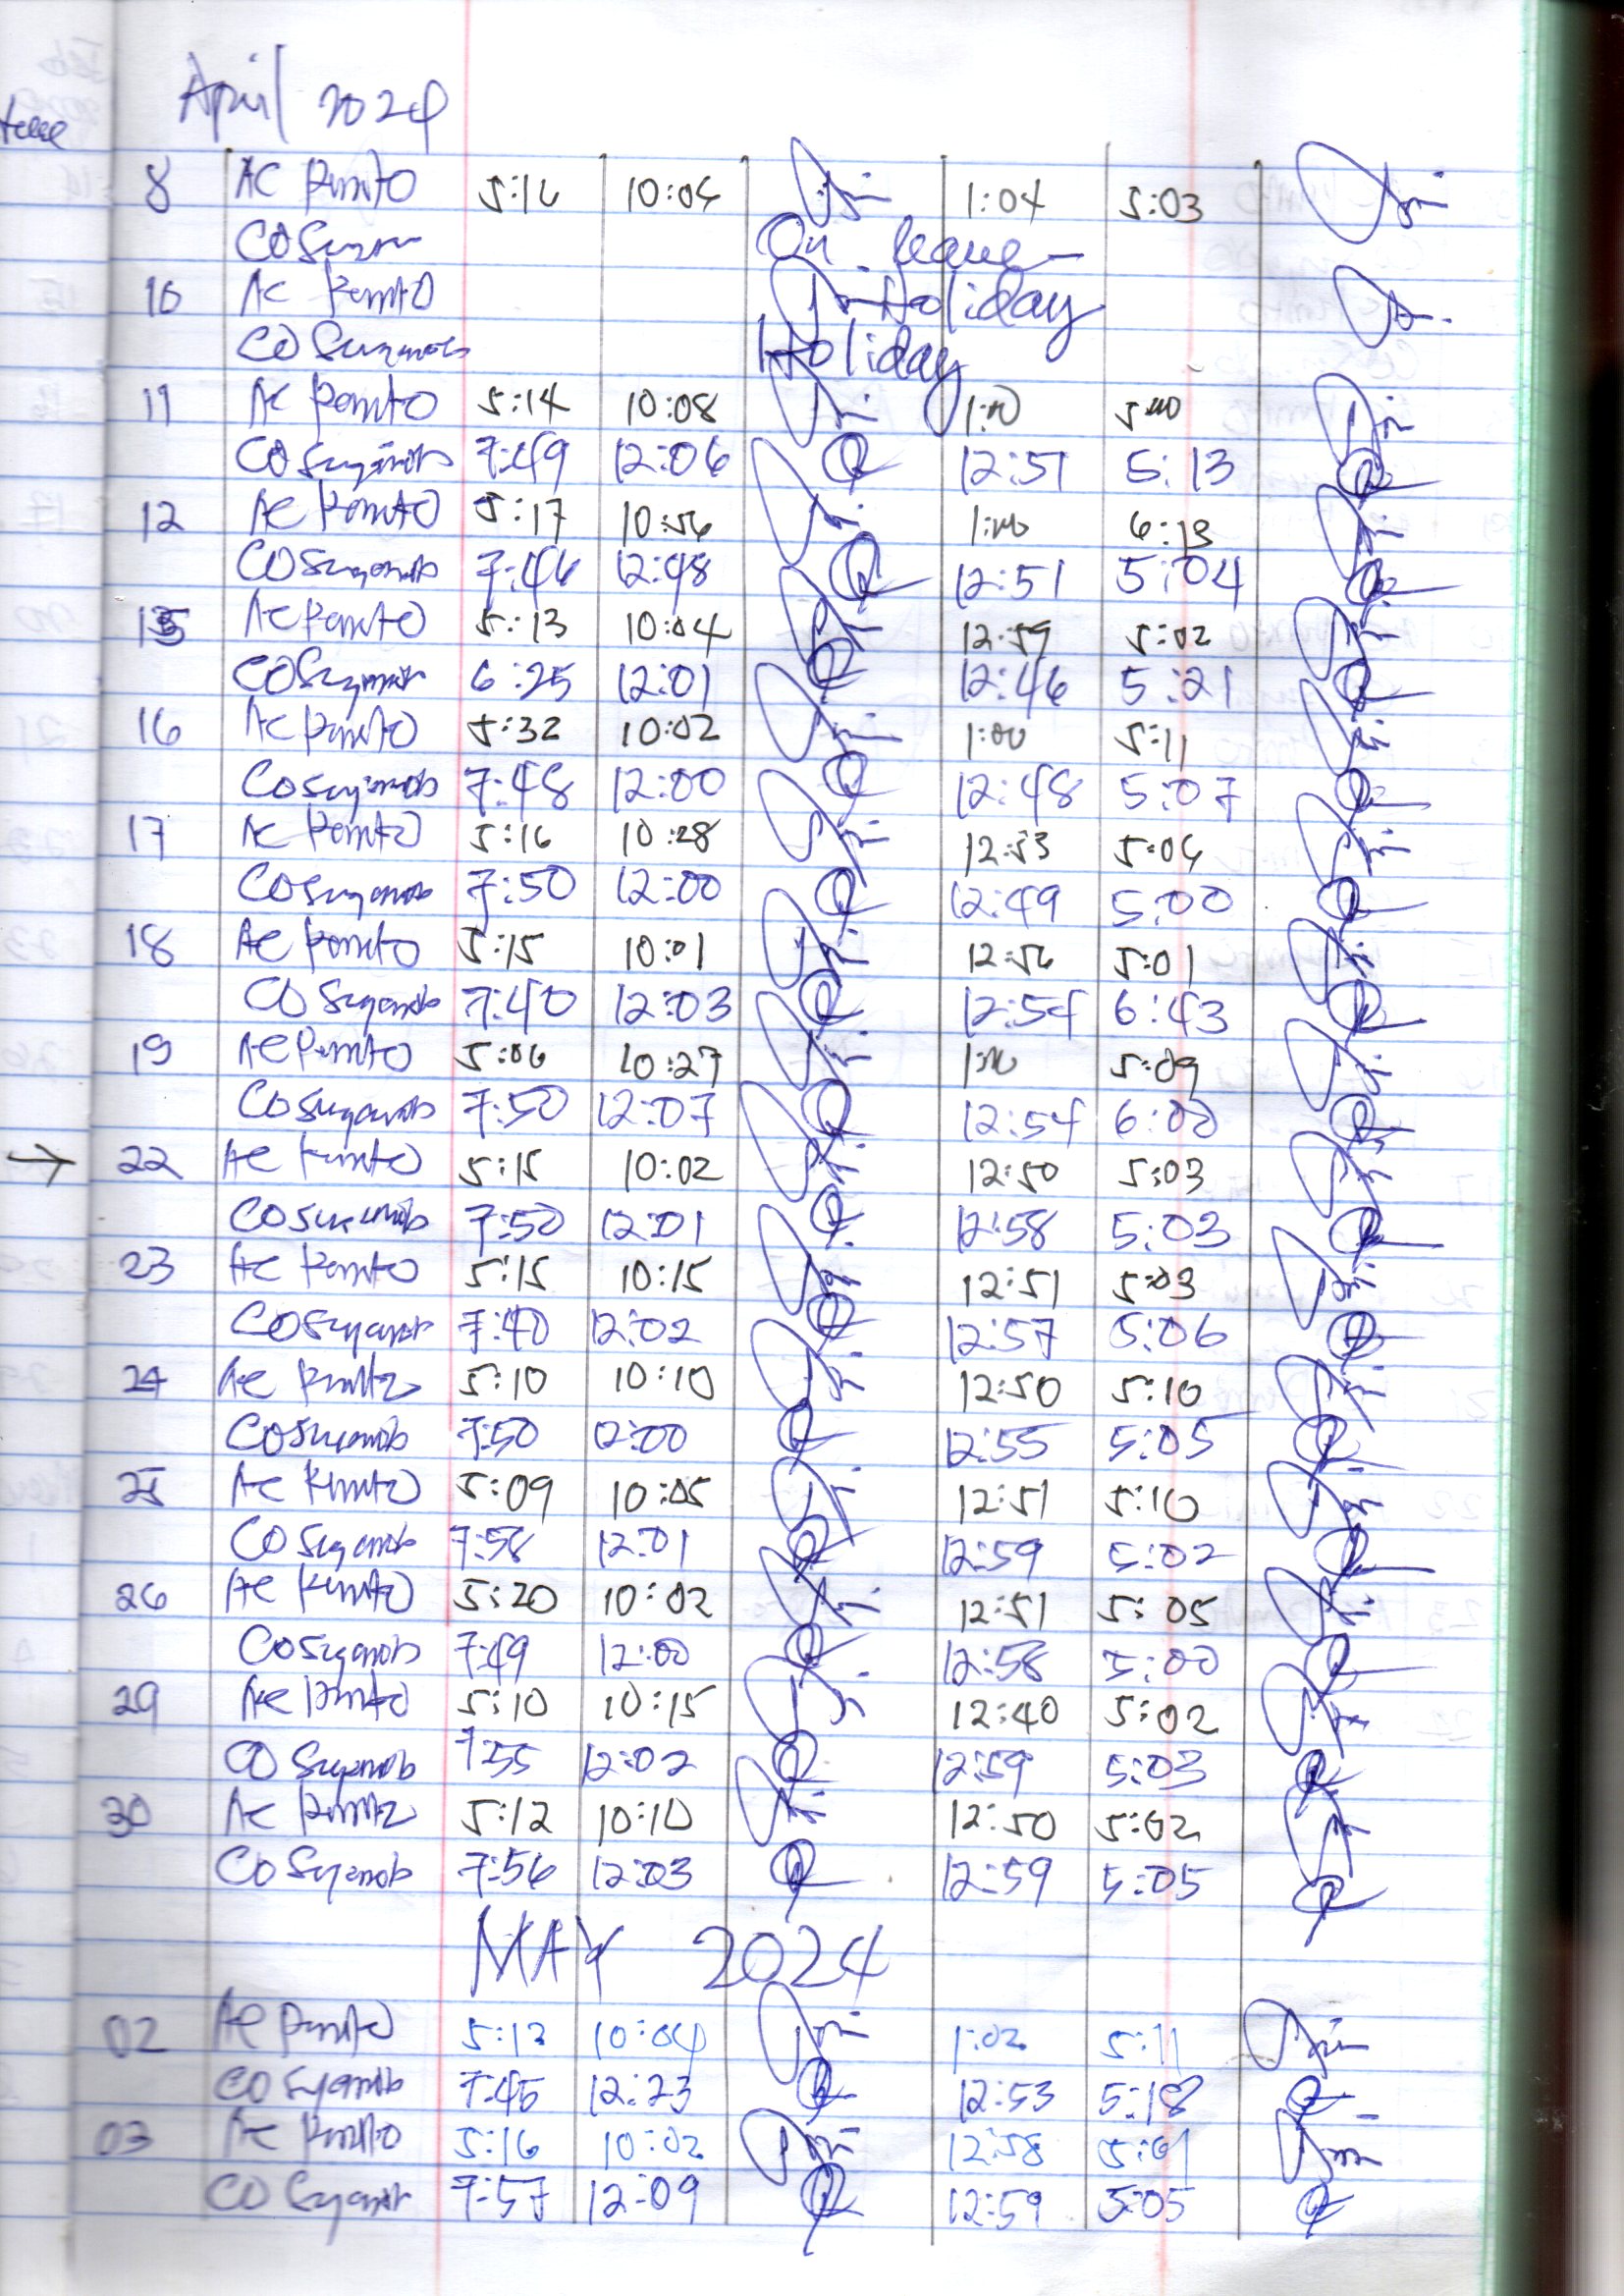 April 2024
8 AC Pernito 5:16 10:04 1:04 5:03
CO On leave
10 AC Pernito Holiday
CO Suganob Holiday
11 AC Pernito 5:14 10:08 1:00 5:00
CO Suganob 7:49 12:06 12:51 5:13
12 AC Pernito 5:17 10:56 1:00 6:13
CO Suganob 7:46 12:48 12:51 5:04
15 AC Pernito 5:13 10:04 12:59 5:02
CO Suganob 6:25 12:01 12:46 5:21
16 AC Pernito 5:32 10:02 1:00 5:11
CO Suganob 7:48 12:00 12:48 5:07
17 AC Pernito 5:16 10:28 12:53 5:04
CO Suganob 7:50 12:00 12:49 5:00
18 AC Pernito 5:15 10:01 12:56 5:01
CO Suganob 7:40 12:03 12:54 6:43
19 AC Pernito 5:06 10:27 1:00 5:09
CO Suganob 7:50 12:07 12:54 6:00
→ 22 AC Pernito 5:15 10:02 12:50 5:03
CO Suganob 7:50 12:01 12:58 5:03
23 AC Pernito 5:15 10:15 12:51 5:03
CO Suganob 7:40 12:02 12:57 5:06
24 AC Pernito 5:10 10:10 12:50 5:10
CO Suganob 7:50 12:00 12:55 5:05
25 AC Pernito 5:09 10:05 12:51 5:10
CO Suganob 7:58 12:01 12:59 5:02
26 AC Pernito 5:20 10:02 12:51 5:05
CO Suganob 7:49 12:00 12:58 5:00
29 AC Pernito 5:10 10:15 12:40 5:02
CO Suganob 7:55 12:02 12:59 5:03
30 AC Pernito 5:12 10:10 12:50 5:02
CO Suganob 7:56 12:03 12:59 5:05
MAY 2024
02 AC Pernito 5:12 10:04 1:02 5:11
CO Suganob 7:45 12:23 12:53 5:18
03 AC Pernito 5:16 10:02 12:58 5:01
CO Suganob 7:57 12:09 12:59 5:05